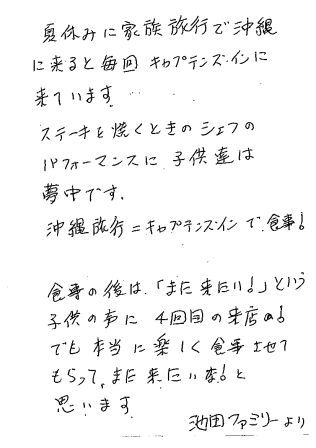 夏休みに家族旅行で沖縄
に来ると毎回キャプテンズ・インに
来ています。
ステーキを焼くときのシェフの
パフォーマンスに子供達は
夢中です。
沖縄旅行=キャプテンズ・インで食事!
食事の後は、「また来たい!」という
子供の声に4回目の来店!
でも本当に楽しく食事させて
もらって、また来たいな!と
思います
池田ファミリーより